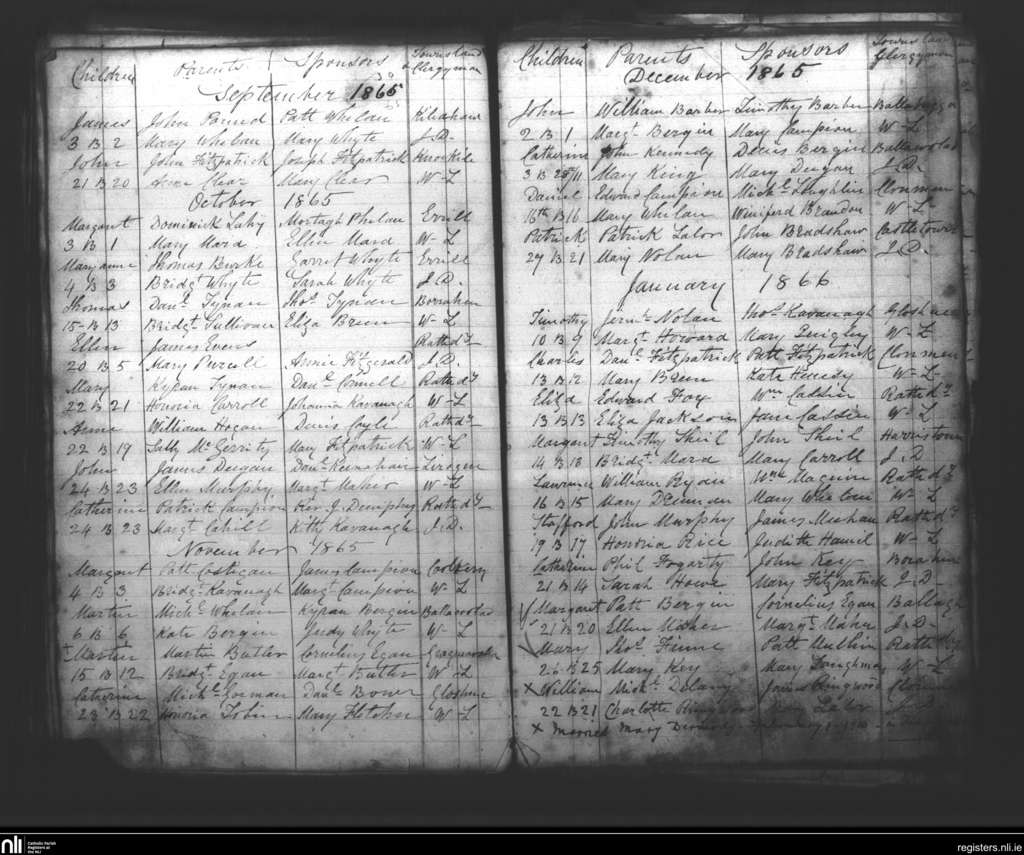 Children Parents Sponsors Townsland & Clergyman
September 1865
James John Pound Patt Whelan Kildahan
3 B 2 Mary Whelan Mary Whyte J. D.
John John Fitzpatrick Joseph Fitzpatrick Knockile
21 B 20 Anne Clear Mary Clear W-L
October 1865
Margaret Dominick Lahy Mortagh Phelan Errill
3 B 1 Mary Mara Ellen Mara W-L
Maryanne Thomas Burke Garret Whyte Errill
4 B 3 Bridgt Whyte Sarah Whyte J. D.
Thomas Danl Tynan Thos Tynan Borrahan
15 B 13 Bridgt Sullivan Eliza Breen W-L
Ellen James Evers Rathdy
20 B 5 Mary Purcell Annie Fitzgerald J. D.
Mary Kyran Tynan Danl Connell Rathdy
22 B 21 Honoria Carroll Johanna Kavanagh W-L
Anne William Hogan Denis Coyle Rathdy
22 B 19 Sally McGerrity Mary Fitzpatrick W-L
John James Deegan Danl Keenahan
24 B 23 Ellen Murphy Margt Maher W-L
Catherine Patrick Campion Rev J. Dempsey Rathdy
24 B 23 Margt Cahill Kitty Kavanagh J. D.
November 1865
Margaret Patt Costigan James Campion
4 B 3 Bridgt Kavanagh Margt Campion W-L
Martin Michl Whelan Kyran Bergin
6 B 6 Kate Bergin Judy Whyte W-L
Martin Martin Butler Cornelius Egan
15 B 12 Bridgt Egan Margt Butler W-L
Catherine Michl Gorman Danl Bower
23 B 22 Honoria Tobin Mary Fletcher W-L
Children Parents Sponsors Clergyman
December 1865
John William Barber Timothy Barber
2 B 1 Margt Bergin Mary Campion W-L
Catherine John Kennedy Denis Bergin
3 B 28/11 Mary King Mary Dugan J. D.
Daniel Edward Campion Michl Loughlin Clonmeen
16th B 16 Mary Whelan Winiford Brandon W-L
Patrick Patrick Lalor John Bradshaw Castletown
29 B 21 Mary Nolan Mary Bradshaw J. D.
January 1866
Timothy Nolan Thos Kavanagh
10 B 9 Margt Howard Mary Quigley W-L
Charles Danl Fitzpatrick Patt Fitzpatrick Clonmeen
13 B 12 Mary Breen Kate W-L
Eliza Edward Foy Wm Rathdy
13 B 13 Eliza Jackson Jane W-L
Margaret Timothy Sheil John Sheil Harristown
14 B 13 Bridgt Mara Mary Carroll J. D
Lawrence William Ryan Wm Maguire Rathdy
16 B 15 Mary Mary Whelan W-L
Stafford John Murphy James Meehan Rathdy
19 B 17 Honoria Rice Judith Hamel W-L
Catherine Phil Fogarty John Key
21 B 14 Sarah Howe Mary Fitzpatrick J. D
Margaret Patt Bergin Cornelius Egan
21 B 20 Ellen Maher Margt Maher J. D
Mary Thos Finne Patt Rathdy
26 B 25 Mary Key Mary W-L
x William Michl Delany James Ringwood
22 B 21 Charlotte
x Married Mary
nli
Catholic Parish
Registers at
the NLI
registers.nli.ie